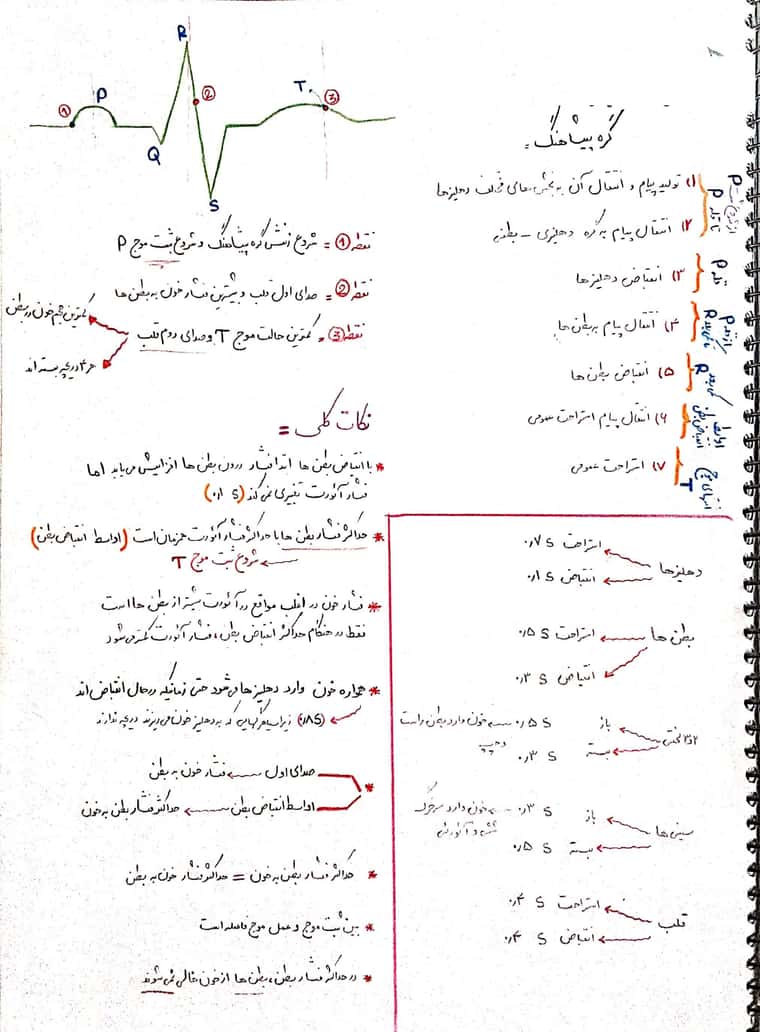 گره پیشاهنگ =
۱) تولید پیام و انتقال آن به بخش‌های مختلف دهلیزها
۲) انتقال پیام به گره دهلیزی - بطنی
از شروع P تا قله P
۳) انقباض دهلیزها
قله P
۴) انتقال پیام به بطن ها
از قله P تا کمی بعد R
۵) انقباض بطن ها
کمی بعد R
۶) انتقال پیام استراحت عمومی
اواسط انقباض بطن
۷) استراحت عمومی
انتهای موج T
P
Q
R
S
T
①
②
③
نقطه ① = شروع زنش گره پیشاهنگ و شروع ثبت موج P
نقطه ② = صدای اول قلب و بیشترین فشار خون به بطن ها
نقطه ③ = کمترین حالت موج T و صدای دوم قلب
کمترین حجم خون در بطن
هر ۴ دریچه بسته اند
نکات کلی =
* با انقباض بطن ها ابتدا فشار درون بطن ها افزایش می یابد اما
فشار آئورت تغییری نمی کند (۰٫۱ S)
* حداکثر فشار بطن ها با حداکثر فشار آئورت همزمان است (اواسط انقباض بطن)
شروع ثبت موج T
* فشار خون در اغلب مواقع در آئورت بیشتر از بطن ها است
فقط در هنگام حداکثر انقباض بطن، فشار آئورت کمتر می شود
* همواره خون وارد دهلیزها می شود حتی زمانیکه در حال انقباض اند
(۰٫۸S) زیرا سیاهرگهایی که به دهلیز خون می ریزند دریچه ندارند
* صدای اول ← فشار خون به بطن
اواسط انقباض بطن ← حداکثر فشار بطن به خون
* حداکثر فشار بطن به خون = حداکثر فشار خون به بطن
* بین ثبت موج و عمل موج فاصله است
* در حداکثر فشار بطن، بطن ها از خون خالی نمی شوند
دهلیزها
استراحت ۰٫۷ S
انقباض ۰٫۱ S
بطن ها
استراحت ۰٫۵ S
انقباض ۰٫۳ S
۲و۳ لختی
باز ۰٫۵ S ← خون وارد بطن راست و چپ
بسته ۰٫۳ S
سینی ها
باز ۰٫۳ S ← خون وارد سرخرگ ششی و آئورتی
بسته ۰٫۵ S
قلب
استراحت ۰٫۴ S
انقباض ۰٫۴ S